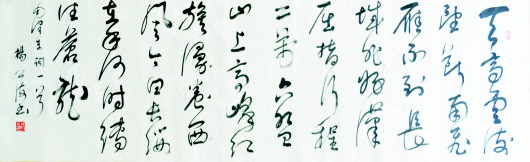 天高雲淡
望斷南飛
雁不到長
城非好漢
屈指行程
二萬六盤
山上高峰紅
旗漫卷西
風今日長纓
在手何時縛
住蒼龍
毛澤東詞一首
楊書